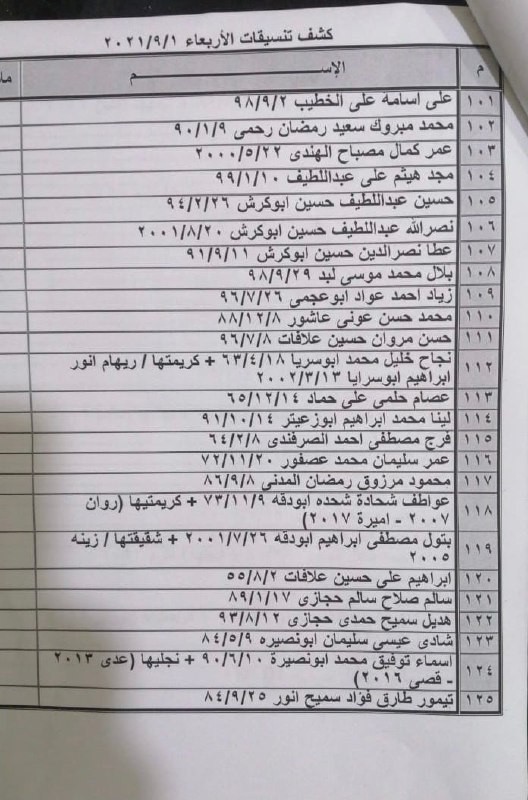 كشف تنسيقات الأربعاء ٢٠٢١/٩/١
م الإســـم
١٠١ على اسامه على الخطيب ٩٨/٩/٢
١٠٢ محمد مبروك سعيد رمضان رحمى ٩٠/١/٩
١٠٣ عمر كمال مصباح الهندى ٢٠٠٠/٥/٢٢
١٠٤ مجد هيثم على عبداللطيف ٩٩/١/١٠
١٠٥ حسين عبداللطيف حسين ابوكرش ٩٤/٢/٢٦
١٠٦ نصرالله عبداللطيف حسين ابوكرش ٢٠٠١/٨/٢٠
١٠٧ عطا نصرالدين حسين ابوكرش ٩١/٩/١١
١٠٨ بلال محمد موسى لبد ٩٨/٩/٢٩
١٠٩ زياد احمد عواد ابوعجمى ٩٦/٧/٢٦
١١٠ محمد حسن عونى عاشور ٨٨/١٢/٨
١١١ حسن مروان حسين علافات ٩٦/٧/٨
١١٢ نجاح خليل محمد ابوسريا ٦٣/٤/١٨ + كريمتها / ريهام انور
ابراهيم ابوسرايا ٢٠٠٢/٣/١٣
١١٣ عصام حلمى على حماد ٦٥/١٢/١٤
١١٤ لينا محمد ابراهيم ابوزعيتر ٩١/١٠/١٤
١١٥ فرج مصطفى احمد الصرفندى ٦٤/٢/٨
١١٦ عمر سليمان محمد عصفور ٧٢/١١/٢٠
١١٧ محمود مرزوق رمضان المدنى ٨٦/٩/٨
١١٨ عواطف شحادة شحده ابودقه ٧٣/١١/٩ + كريمتيها (روان
٢٠٠٧ - اميرة ٢٠١٧)
١١٩ بتول مصطفى ابراهيم ابودقه ٢٠٠١/٧/٢٦ + شقيقتها / زينه
٢٠٠٥
١٢٠ ابراهيم على حسين علافات ٥٥/٨/٢
١٢١ سالم صلاح سالم حجازى ٨٩/١/١٧
١٢٢ هديل سميح حمدى حجازى ٩٣/٨/١٢
١٢٣ شادى عيسى سليمان ابونصيره ٨٤/٥/٩
١٢٤ اسماء توفيق محمد ابونصيرة ٩٠/٦/١٠ + نجليها (عدى ٢٠١٣
- قصى ٢٠١٦)
١٢٥ تيمور طارق فؤاد سميح انور ٨٤/٩/٢٥